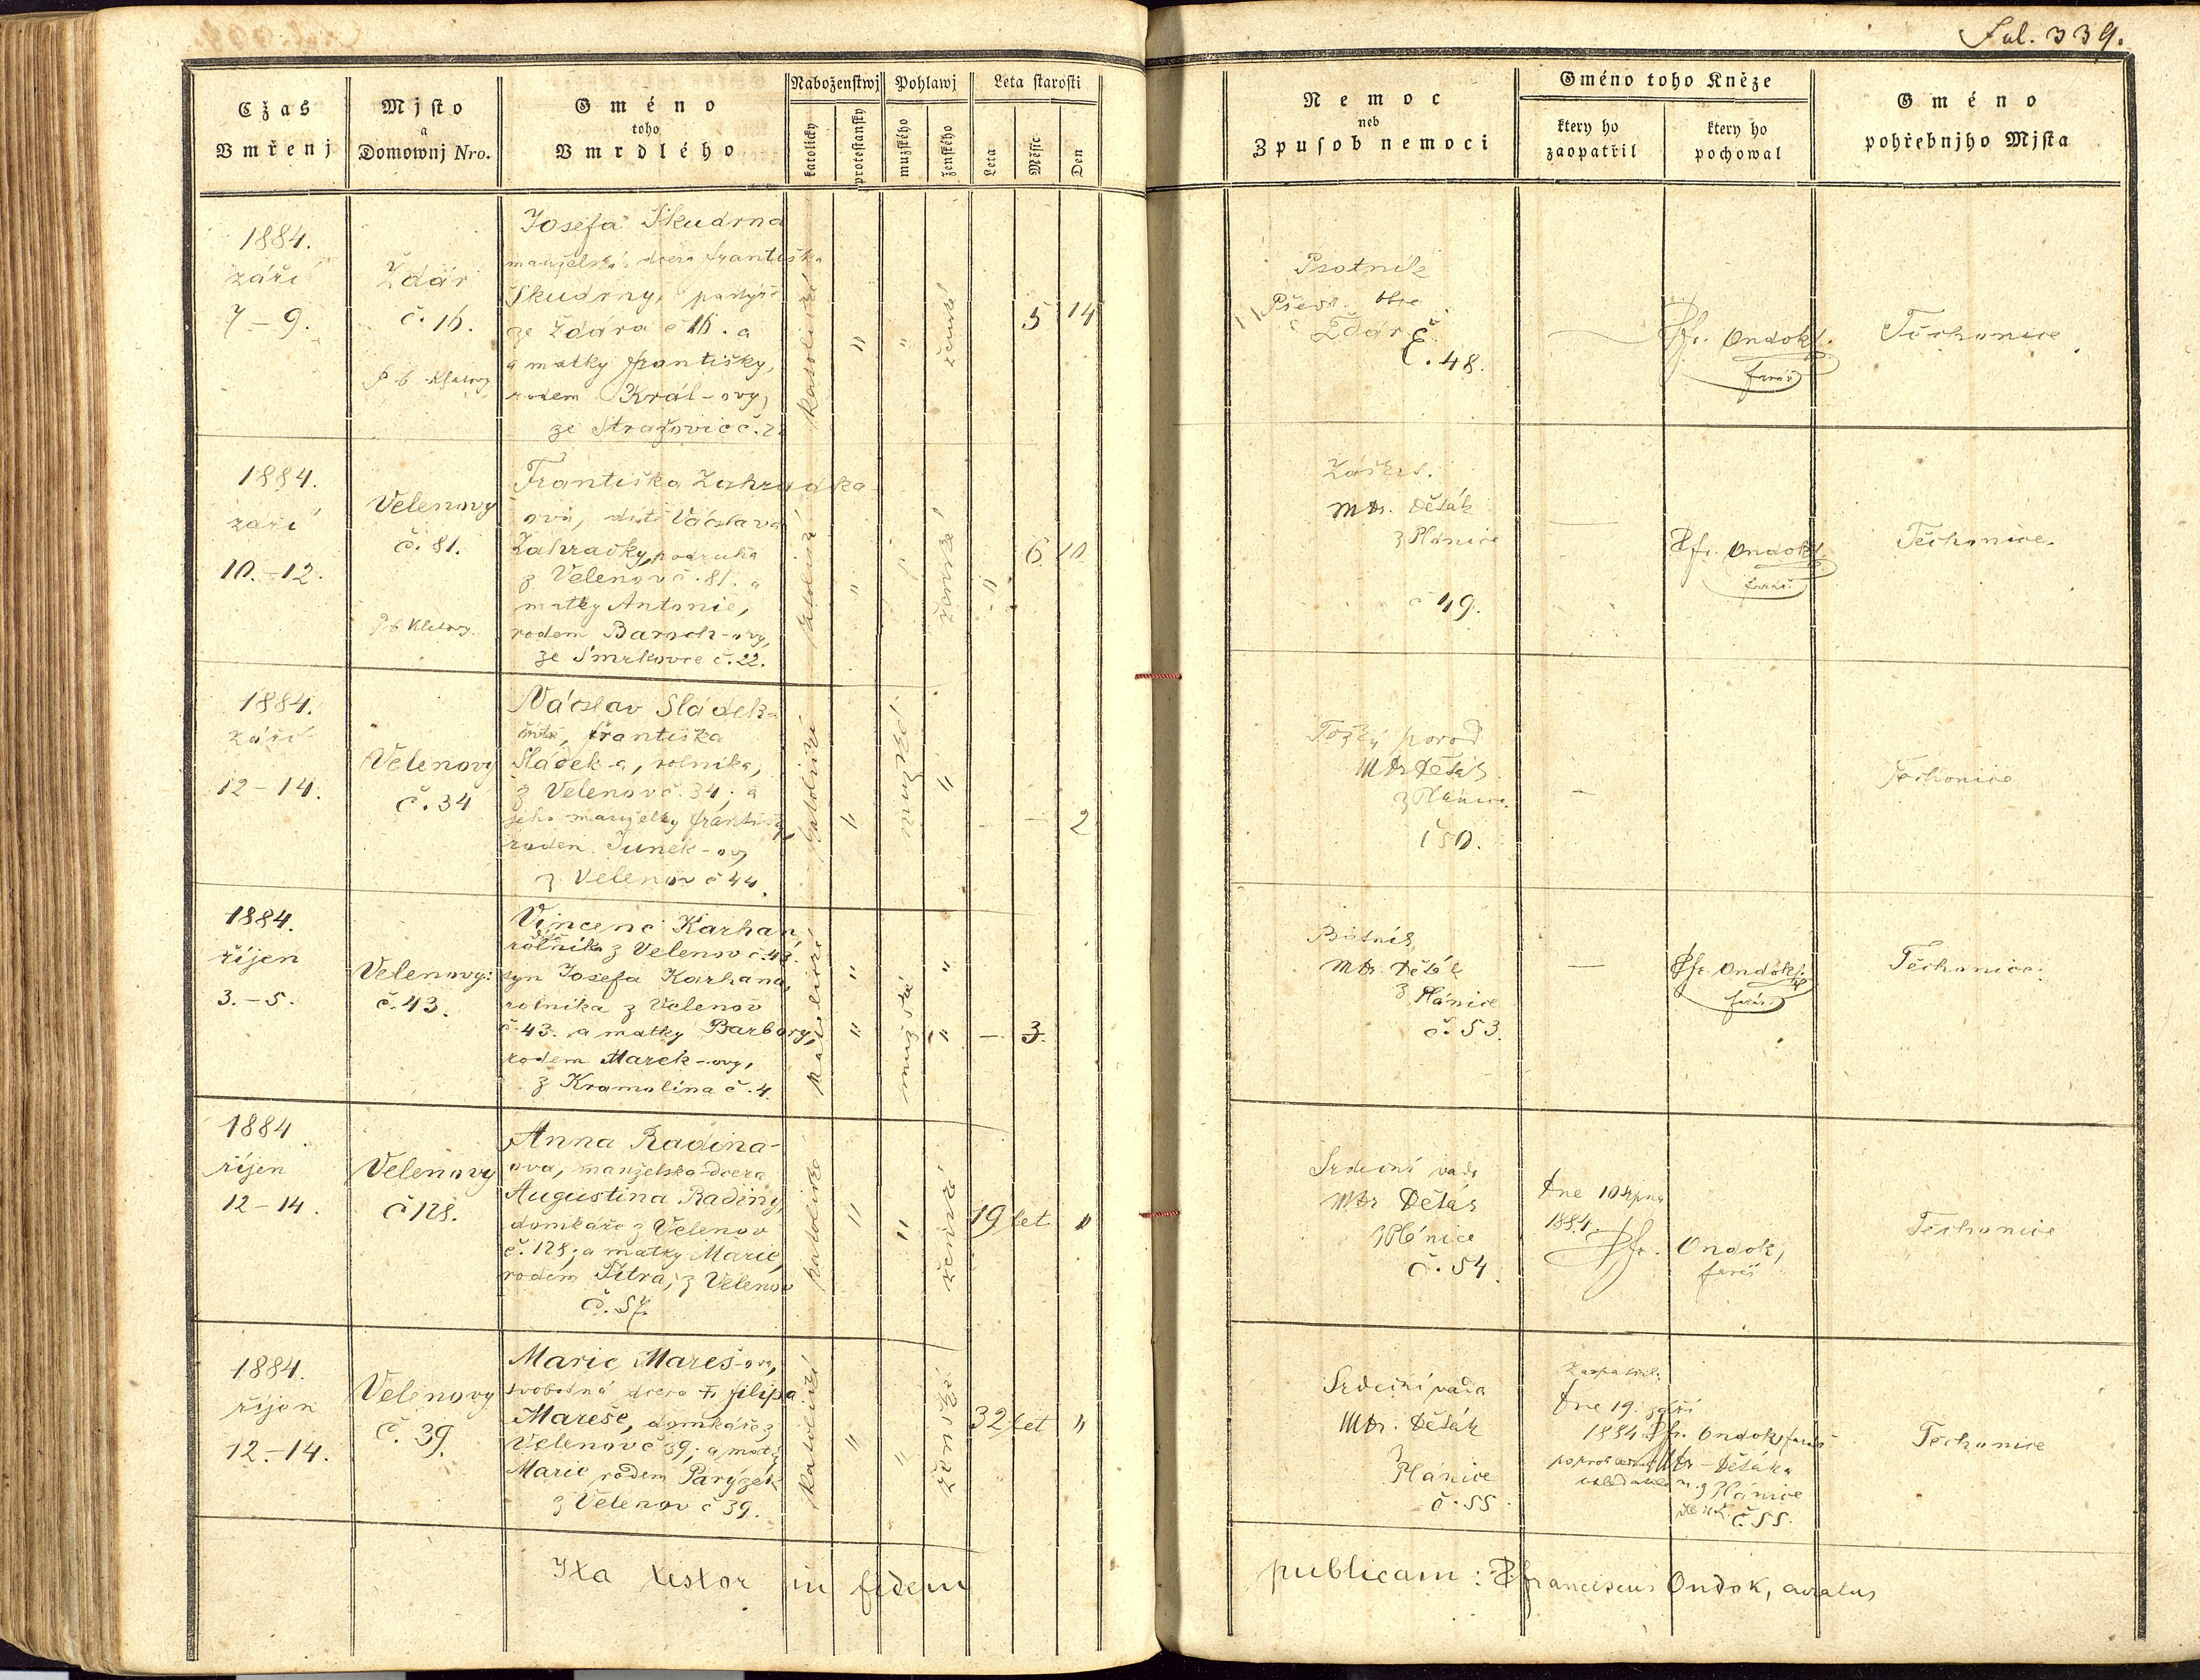 Fol. 339.
Cžas Vmřenj
Mjsto a Domownj Nro.
Gméno toho Vmrdlého
Naboženstwj
katolický
protestanský
Pohlawj
mužského
ženského
Leta starosti
Leta
Měsíc
Den
Nemoc neb Zpusob nemoci
Gméno toho Kněze
ktery ho zaopatřil
ktery ho pochowal
Gméno pohřebnjho Mjsta
1884.
září
7 – 9.
Ždár
č. 16.
Josefa Skudrna
manželská dcera Františka
Skudrny,
ze Ždára č 16. a
a matky Františky,
rodem Král-ovy,
ze Stražovic č. 2
katolické
"
"
ženské
5
14
Psotník
obce
Ždár
Č. 48.
—
Ffr. Ondok
farář
Těchonice
1884.
září
10.–12.
Velenovy
č. 81.
Františka Zahradka-
ova, dítě Václava
Zahradky, podruha
z Velenov č. 81. a
matky Antonie,
rodem
ze Smrkovce č. 22.
katolické
"
"
ženské
"
6
10
Záškrt.
Mdr. Děták
z Plánice
č 49.
—
Ffr. Ondok
farář
Těchonice.
1884.
září
12 – 14.
Velenovy
č. 34
Václav Sládek-
dítě, Františka
Sládek-a, rolníka,
z Velenov č. 34; a
jeho manželky
rodem Junek-ovy
z Velenov č 44.
katolické
"
mužské
"
–
–
2
Těžký porod
Mdr Děták
z Plánice
č 50.
–
Těchonice
1884.
říjen
3. – 5.
Velenovy:
č. 43.
Vincenc Karhan,
rolníka z Velenov č. 43.
syn Josefa Karhana,
rolníka z Velenov
č. 43. a matky Barbory,
rodem Marek-ovy,
z Kramolína č. 4.
katolické
"
"
mužské
"
"
–
3.
Mdr. Děták
z Plánice
č. 53.
—
Ffr. Ondok
farář
Těchonice.
1884
říjen
12 – 14.
Velenovy
č 128.
Anna Radina-
ova, manželska dcera
Augustina Radiny,
domkáře z Velenov
č. 128; a matky Marie,
rodem Šitra, z Velenov
č. 57.
katolické
"
"
ženské
19 let
"
Srdeční vada
Mdr Děták
z Plánice
č. 54.
dne 10 srpna
1884.
Ffr. Ondok,
farář
Těchonice
1884.
říjen
12 – 14.
Velenovy
č. 39.
Marie Mareš-ova,
svobodná dcera † Filipa
Mareše, domkáře z
Velenov č 39; a matky
Marie rodem Paryzek
z Velenov č 39.
katolické
"
"
ženské
32 let
"
Srdeční vada
Mdr. Děták
z
Plánice
č. 55
Zaopatřil:
dne 19. září
1884 Ffr. Ondok, farář
Mdr – Dětáka
z Plánice
č. 55.
Těchonice
Ita testor in fidem publicam: Ffranciscus Ondok, curatus